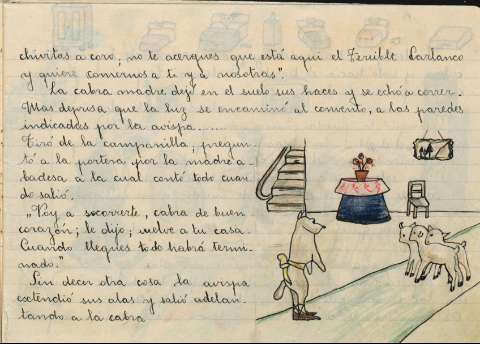 chivitas a coro, no te acerques que está aquí el Terrible Carlanco
y quiere comernos a ti y a nosotras".
La cabra madre dejó en el suelo sus haces y se echó a correr.
Mas deprisa que la luz se encaminó al convento, a las paredes
indicadas por la avispa......
Tiró de la campanilla, pregun-
tó a la portera por la madre a-
badesa a la cual contó todo cuan-
do salió.
"Voy a socorrerte, cabra de buen
corazón; le dijo; vuelve a tu casa.
Cuando llegues todo habrá termi-
nado."
Sin decir otra cosa la avispa
extendió sus alas y salió adelan-
tando a la cabra